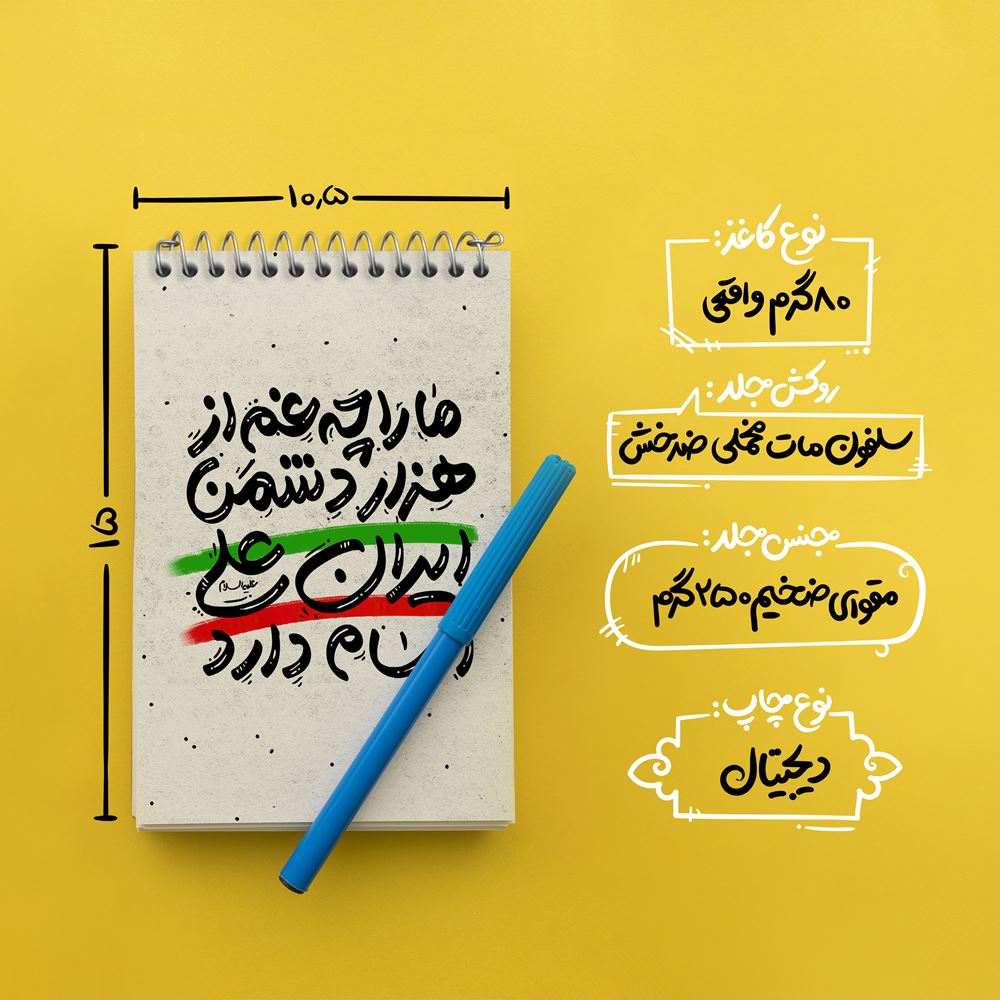 ۱۰٫۵
۱۵
ما را چه غم از
هزار دشمن
ایران علی
علیه‌السلام
نام دارد
نوع کاغذ:
۸۰ گرم واقعی
روکش جلد:
سلفون مات مخملی ضدخش
جنس جلد:
مقوای ضخیم ۲۵۰ گرم
نوع چاپ:
دیجیتال